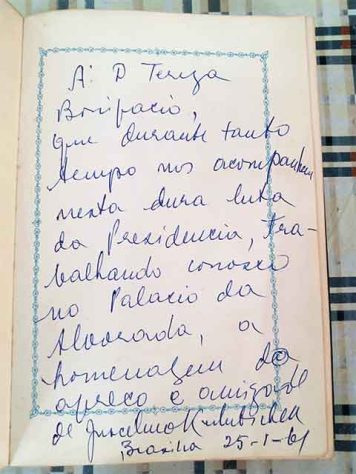 A: D Tereza
Bonifacio,
que durante tanto
tempo nos acompanhou
nesta dura luta
da Presidencia, tra-
balhando conosco
no Palacio da
Alvorada, a
homenagem do
apreço e amizade
de Juscelino Kubitschek
Brasilia 25-1-61